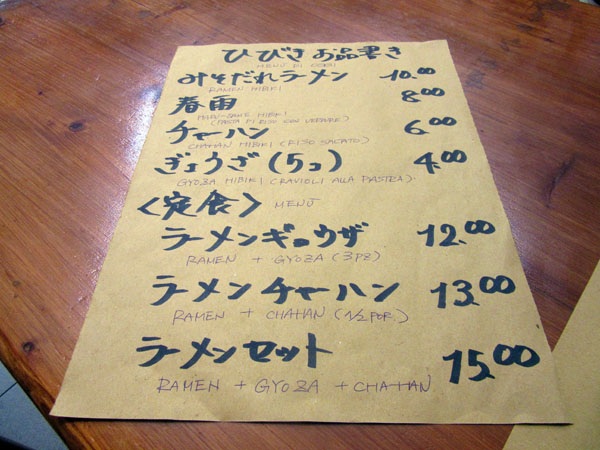 ひびき お品書き
MENU DI OGGI
みそだれラーメン 10.00
RAMEN HIBIKI
春雨 8.00
HIBIKI
(PASTA DI RISO CON VERDURE)
チャーハン 6.00
CHAHAN HIBIKI (RISO SALTATO)
ぎょうざ (5コ) 4.00
GYOZA HIBIKI (RAVIOLI ALLA PIASTRA)
〈定食〉 MENU
ラーメンギョウザ 12.00
RAMEN + GYOZA (3PZ)
ラーメンチャーハン 13.00
RAMEN + CHAHAN (1/2 POR.)
ラーメンセット 15.00
RAMEN + GYOZA + CHAHAN